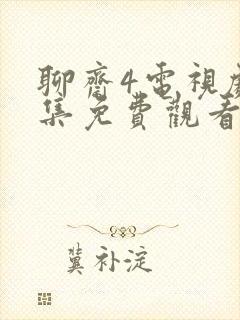 聊齋4電視劇
集免費觀看
冀补淀